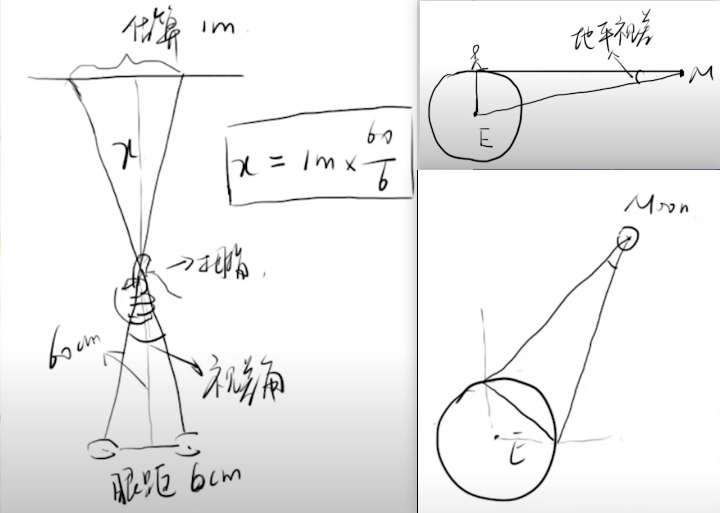 估算 1m
x
x = 1m × 60/6
→拇指
60cm
视差角
眼距 6cm
地平视差
M
E
Moon
E